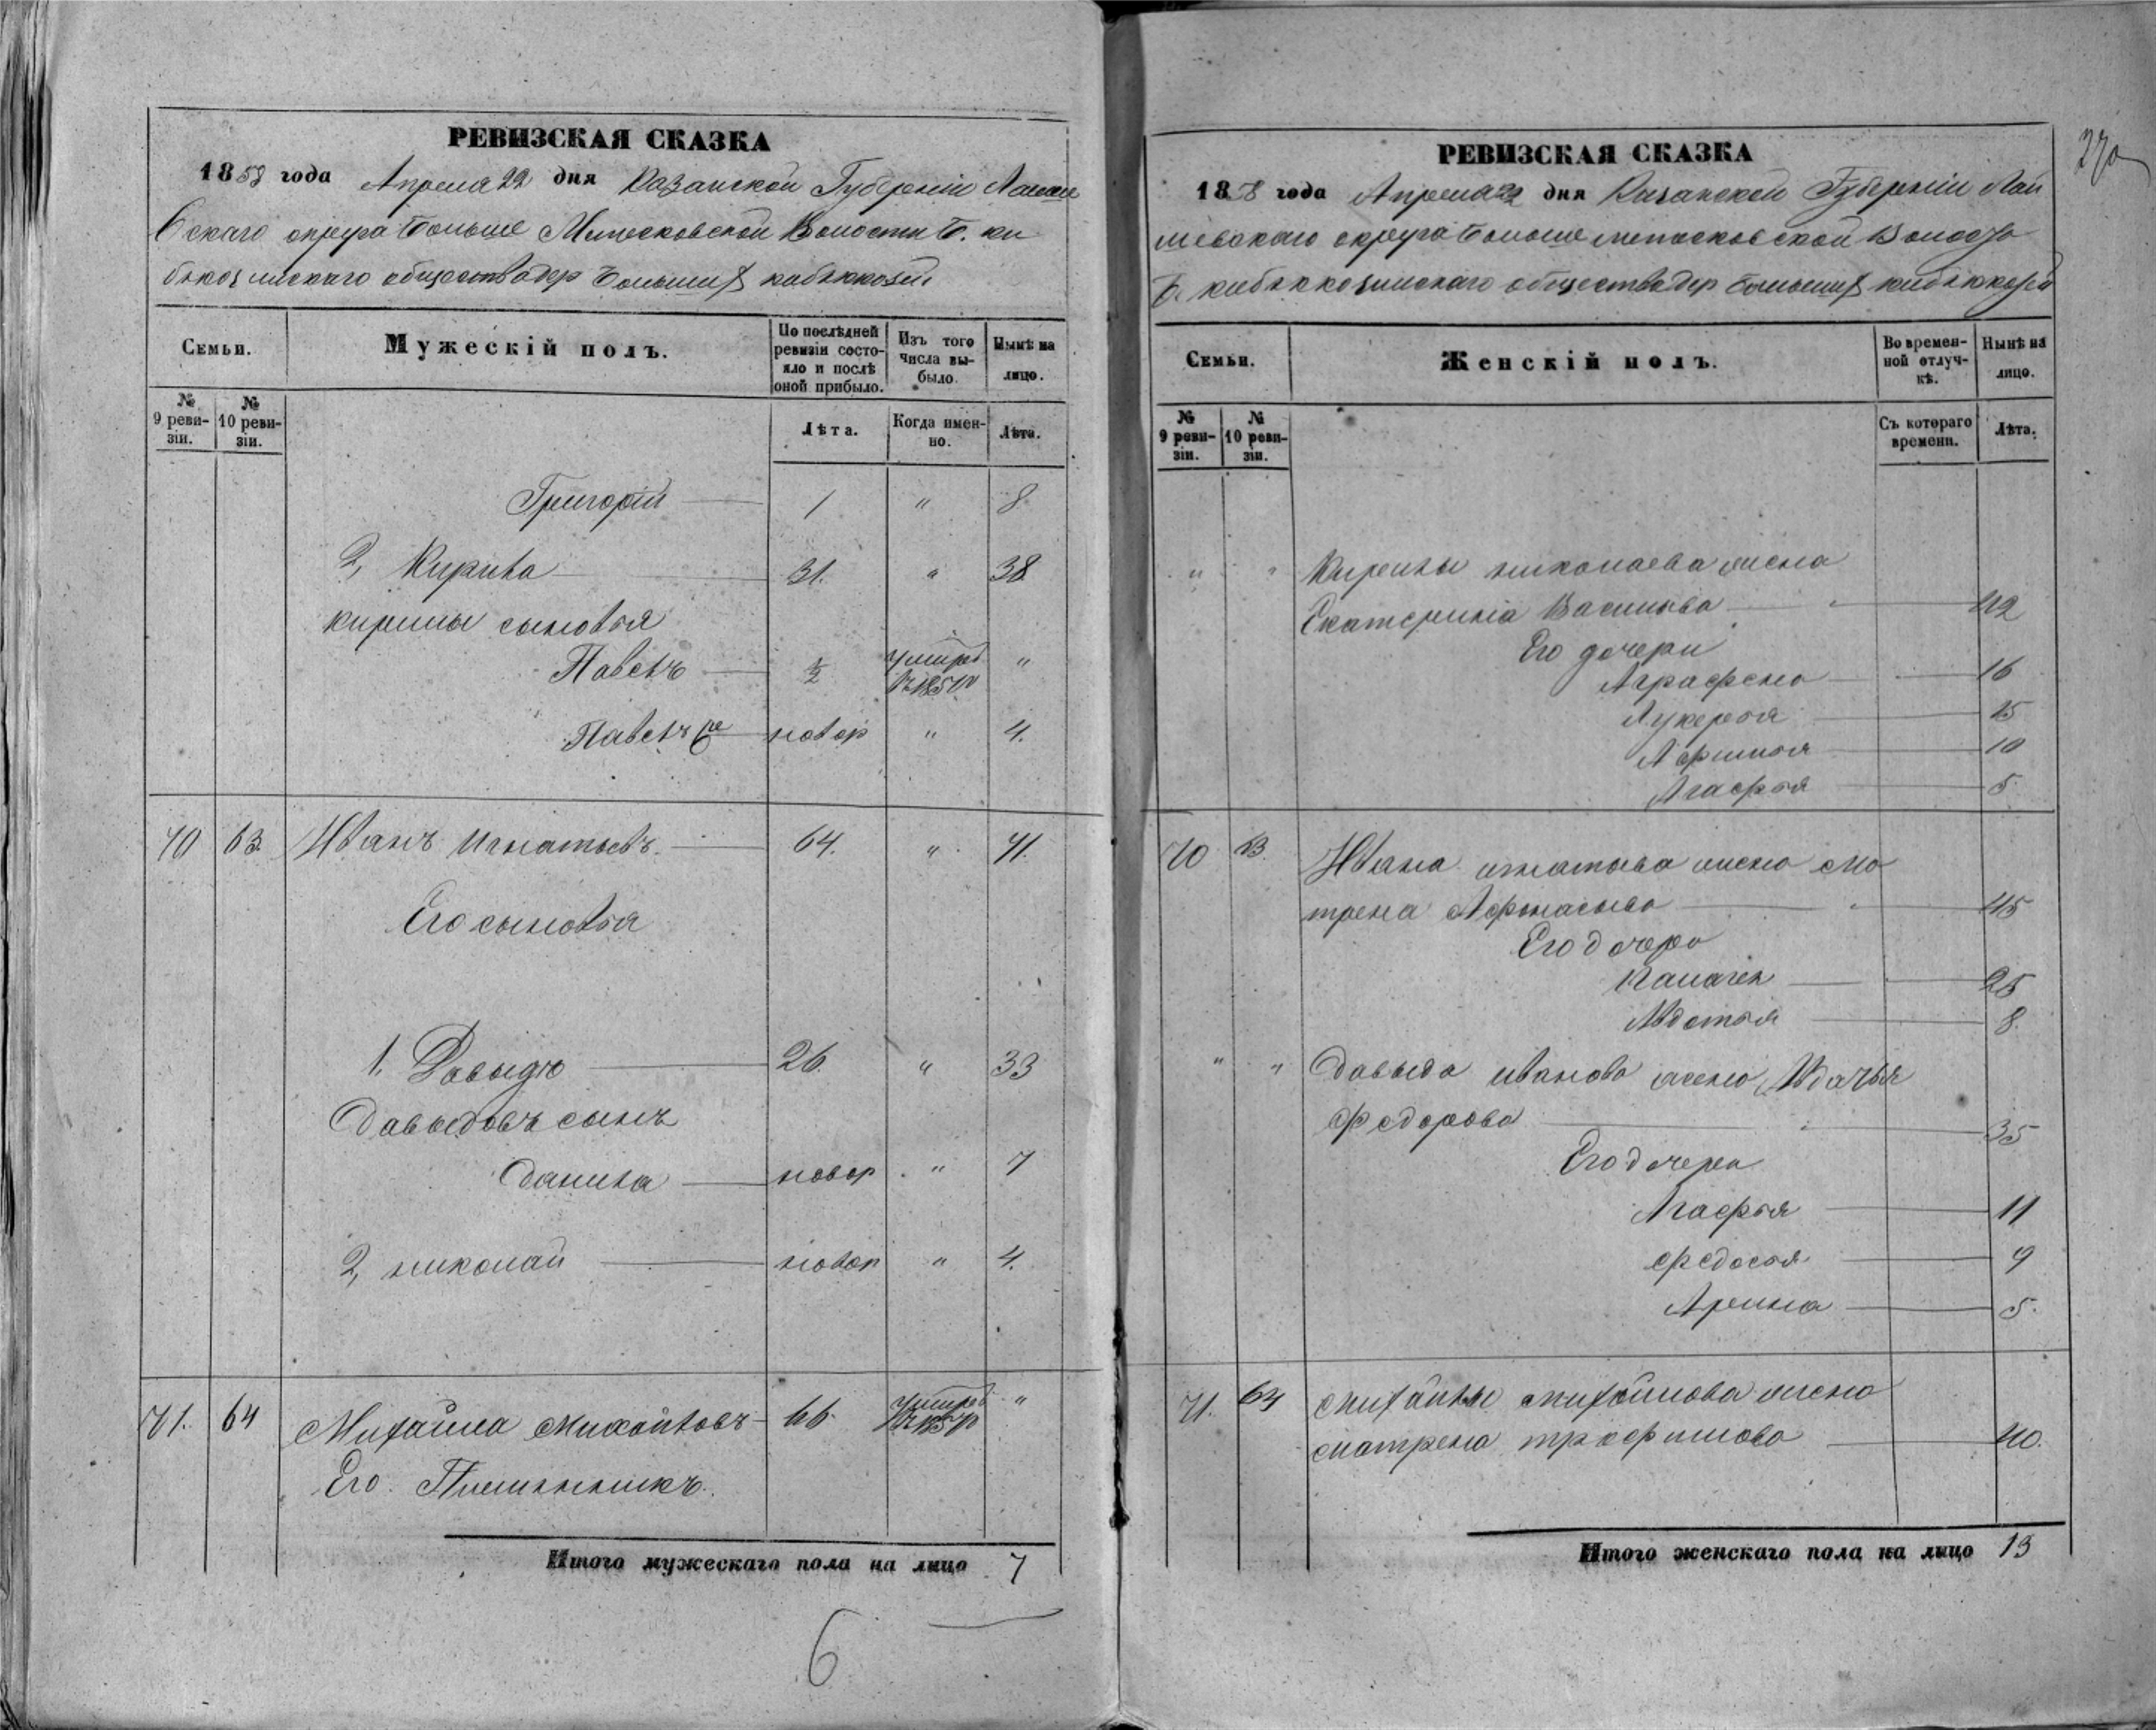 РЕВИЗСКАЯ СКАЗКА
1858 года Апреля 22 дня Казанской Губерніи Лаише
вскаго округа Больше Метесковской Волости Б. ки
бякозинскаго общества дер Большихъ кибяккозей
Семьи.
Мужескій полъ.
По послѣдней ревизіи состояло и послѣ оной прибыло.
Изъ того числа выбыло.
Нынѣ на лицо.
№ 9 ревизіи.
№ 10 ревизіи.
Лѣта.
Когда именно.
Лѣта.
Григорій 1 " 8
2, Кирила 31. " 38
кирилы сыновья
Павелъ ½ умеръ "
Павелъ 2й новор " 4.
70 63. Иванъ Игнатьевъ. 64. " 71.
Его сыновья
1. Давыдъ 26. " 33
Давыдовъ сынъ
Данила новор " 7
2, николай новор " 4.
71. 64 Михайла Михайловъ 66. умеръ "
Его Племянникъ.
Итого мужескаго пола на лицо 7
6
РЕВИЗСКАЯ СКАЗКА
1858 года Апреля 22 дня Казанской Губерніи Лаи
шевскаго округа Больше метесковской Волости
Б. кибяккозинскаго общества дер Большихъ кибяккозей
Семьи.
Женскій полъ.
Во временной отлучкѣ.
Нынѣ на лицо.
№ 9 ревизіи.
№ 10 ревизіи.
Съ котораго времени.
Лѣта.
" " Кирилы николаева жена
Екатерина Васильева " 42
Его дочери
Аграфена 16
Лукерья 15
10
Агафья 5
70 63. Ивана игнатьева жена Ма
трена Афонасьева " 45
Его дочери
25
Авдотья 8.
" " Давыда иванова жена
Федорова " 35
Его дочери
Агафья 11
Федосья 9
Арина 5.
71. 64 Михайлы михайлова жена
матрена трофимова 40.
Итого женскаго пола на лицо 13